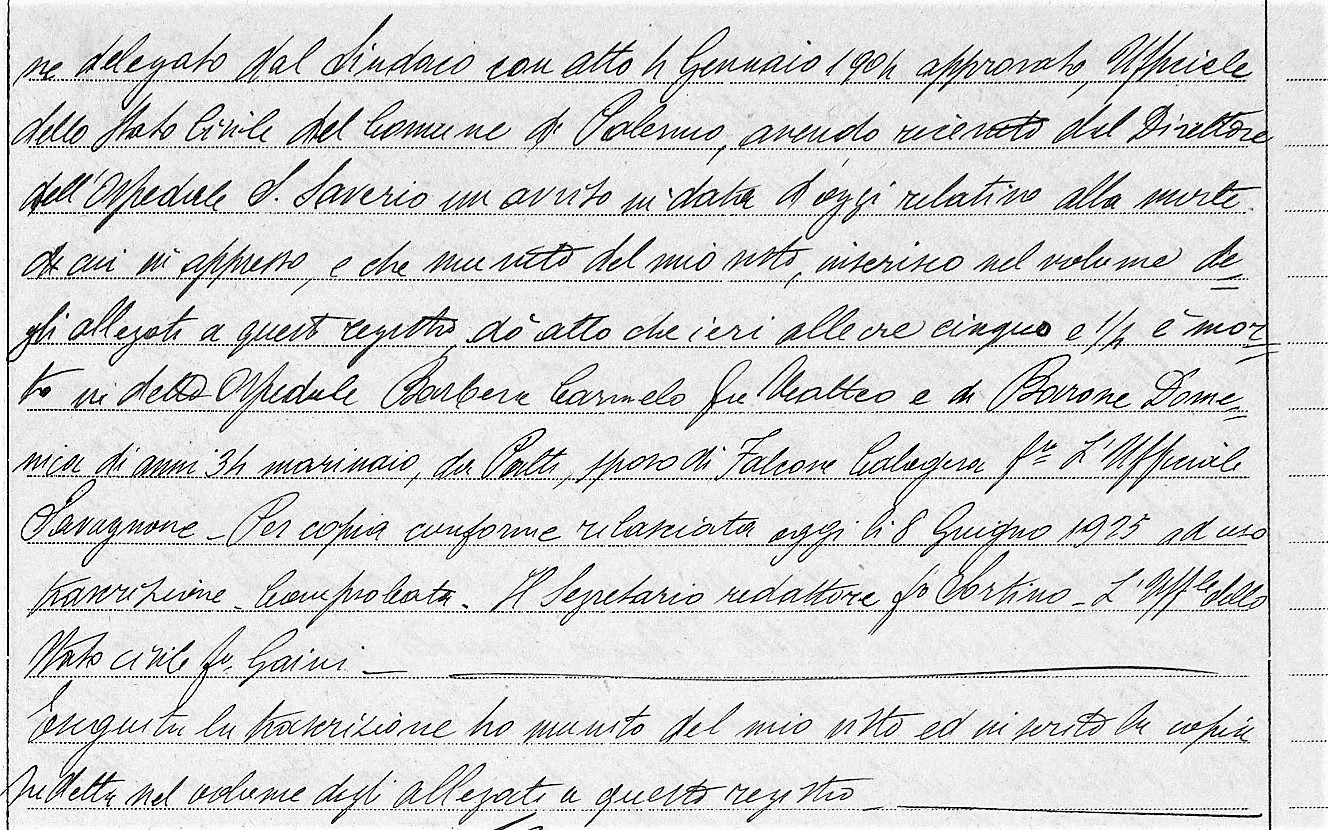 ne delegato dal Sindaco con atto 4 Gennaio 1904 approvato, Ufficiale
dello Stato Civile del Comune di Palermo, avendo ricevuto dal Direttore
dell'Ospedale S. Saverio un avviso in data d'oggi relativo alla morte
di cui in appresso, e che munito del mio visto, inserisco nel volume de=
gli allegati a questo registro, dò atto che ieri alle ore cinque e 1/4 è mor=
to in detto Ospedale Barbera Carmelo fu Matteo e di Barone Dome=
nica di anni 34 marinaio, da Patti, sposo di Falcone Calogera fto L'Ufficiale
Savagnone - Per copia conforme rilasciata oggi li 8 Giugno 1925 ad uso
trascrizione - Comprobata - Il Segretario redattore fo Cortino - L'Uffle dello
Stato civile fo. Gaini -
Eseguita la trascrizione ho munito del mio visto ed inserito la copia
sudetta nel volume degli allegati a questo registro -